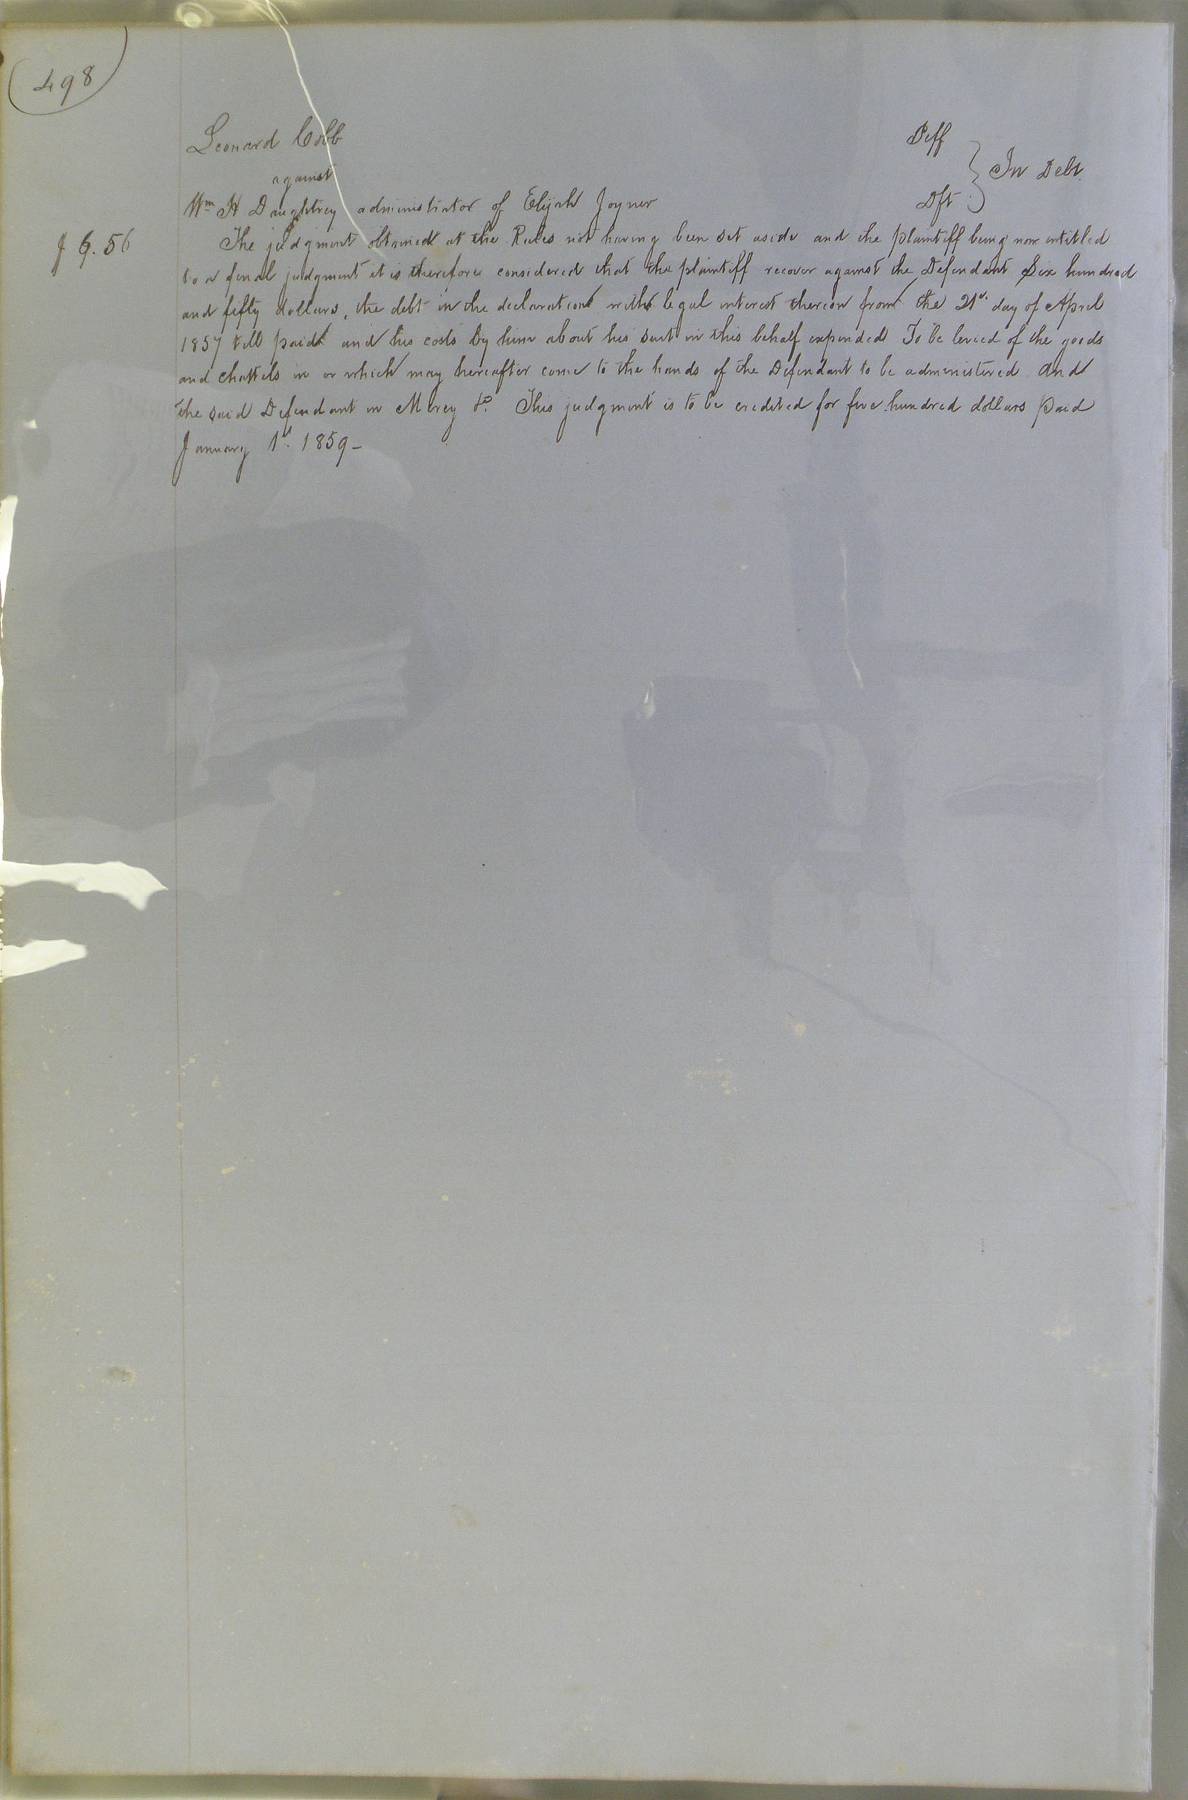 498
Leonard Cobb Plff
against In Debt.
Wm H Daughtrey administrator of Elijah Joyner Dft.
The judgment obtained at the Rules not having been set aside and the plaintiff being now entitled
to a final judgment it is therefore considered that the plaintiff recover against the Defendant Six hundred
and fifty dollars, the debt in the declaration with legal interest thereon from the 21st day of April
1857 till paid and his costs by him about his suit in this behalf expended To be levied of the goods
and chattels in or which may hereafter come to the hands of the Defendant to be administered And
the said Defendant in Mercy &c. This judgment is to be credited for five hundred dollars paid
January 1st. 1859-